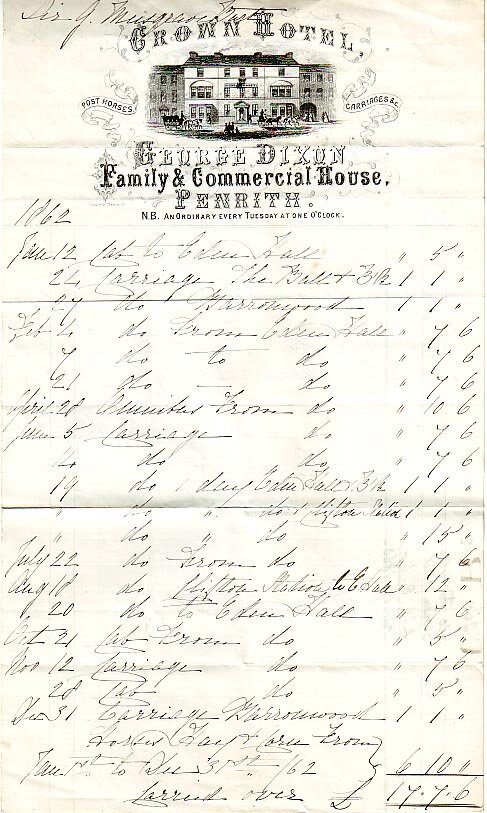 Sir G. Musgrave Bart
CROWN HOTEL,
POST HORSES,
CARRIAGES &c.
GEORGE DIXON
Family & Commercial House,
PENRITH.
N.B. AN ORDINARY EVERY TUESDAY AT ONE O'CLOCK.
1862
Jan 12 Cab to Eden Hall " 5 "
24 Carriage The Ball & 1 1 "
27 do Barronwood 1 1 "
Feb 4 do From Eden Hall " 7 6
7 do to do " 7 6
21 do — do " 7 6
April 28 Omnibus From do " 10 6
June 5 Carriage do " 7 6
14 do do " 7 6
19 do 1 day Eden Hall & 1 1 "
" do " do Clifton 1 1 "
do " do " 15 "
July 22 do From do " 7 6
Aug 18 do Clifton Station to E Hall " 12 "
" 20 do to Eden Hall " 7 6
Oct 31 Cab From do " 5 "
Nov 12 Carriage do " 7 6
28 Cab do " 5 "
Dec 31 Carriage Barronwood 1 1 "
Horses Hay & Corn From
Jan 1st to Dec 31st /62 6 10 "
Carried over £ 17.7.6